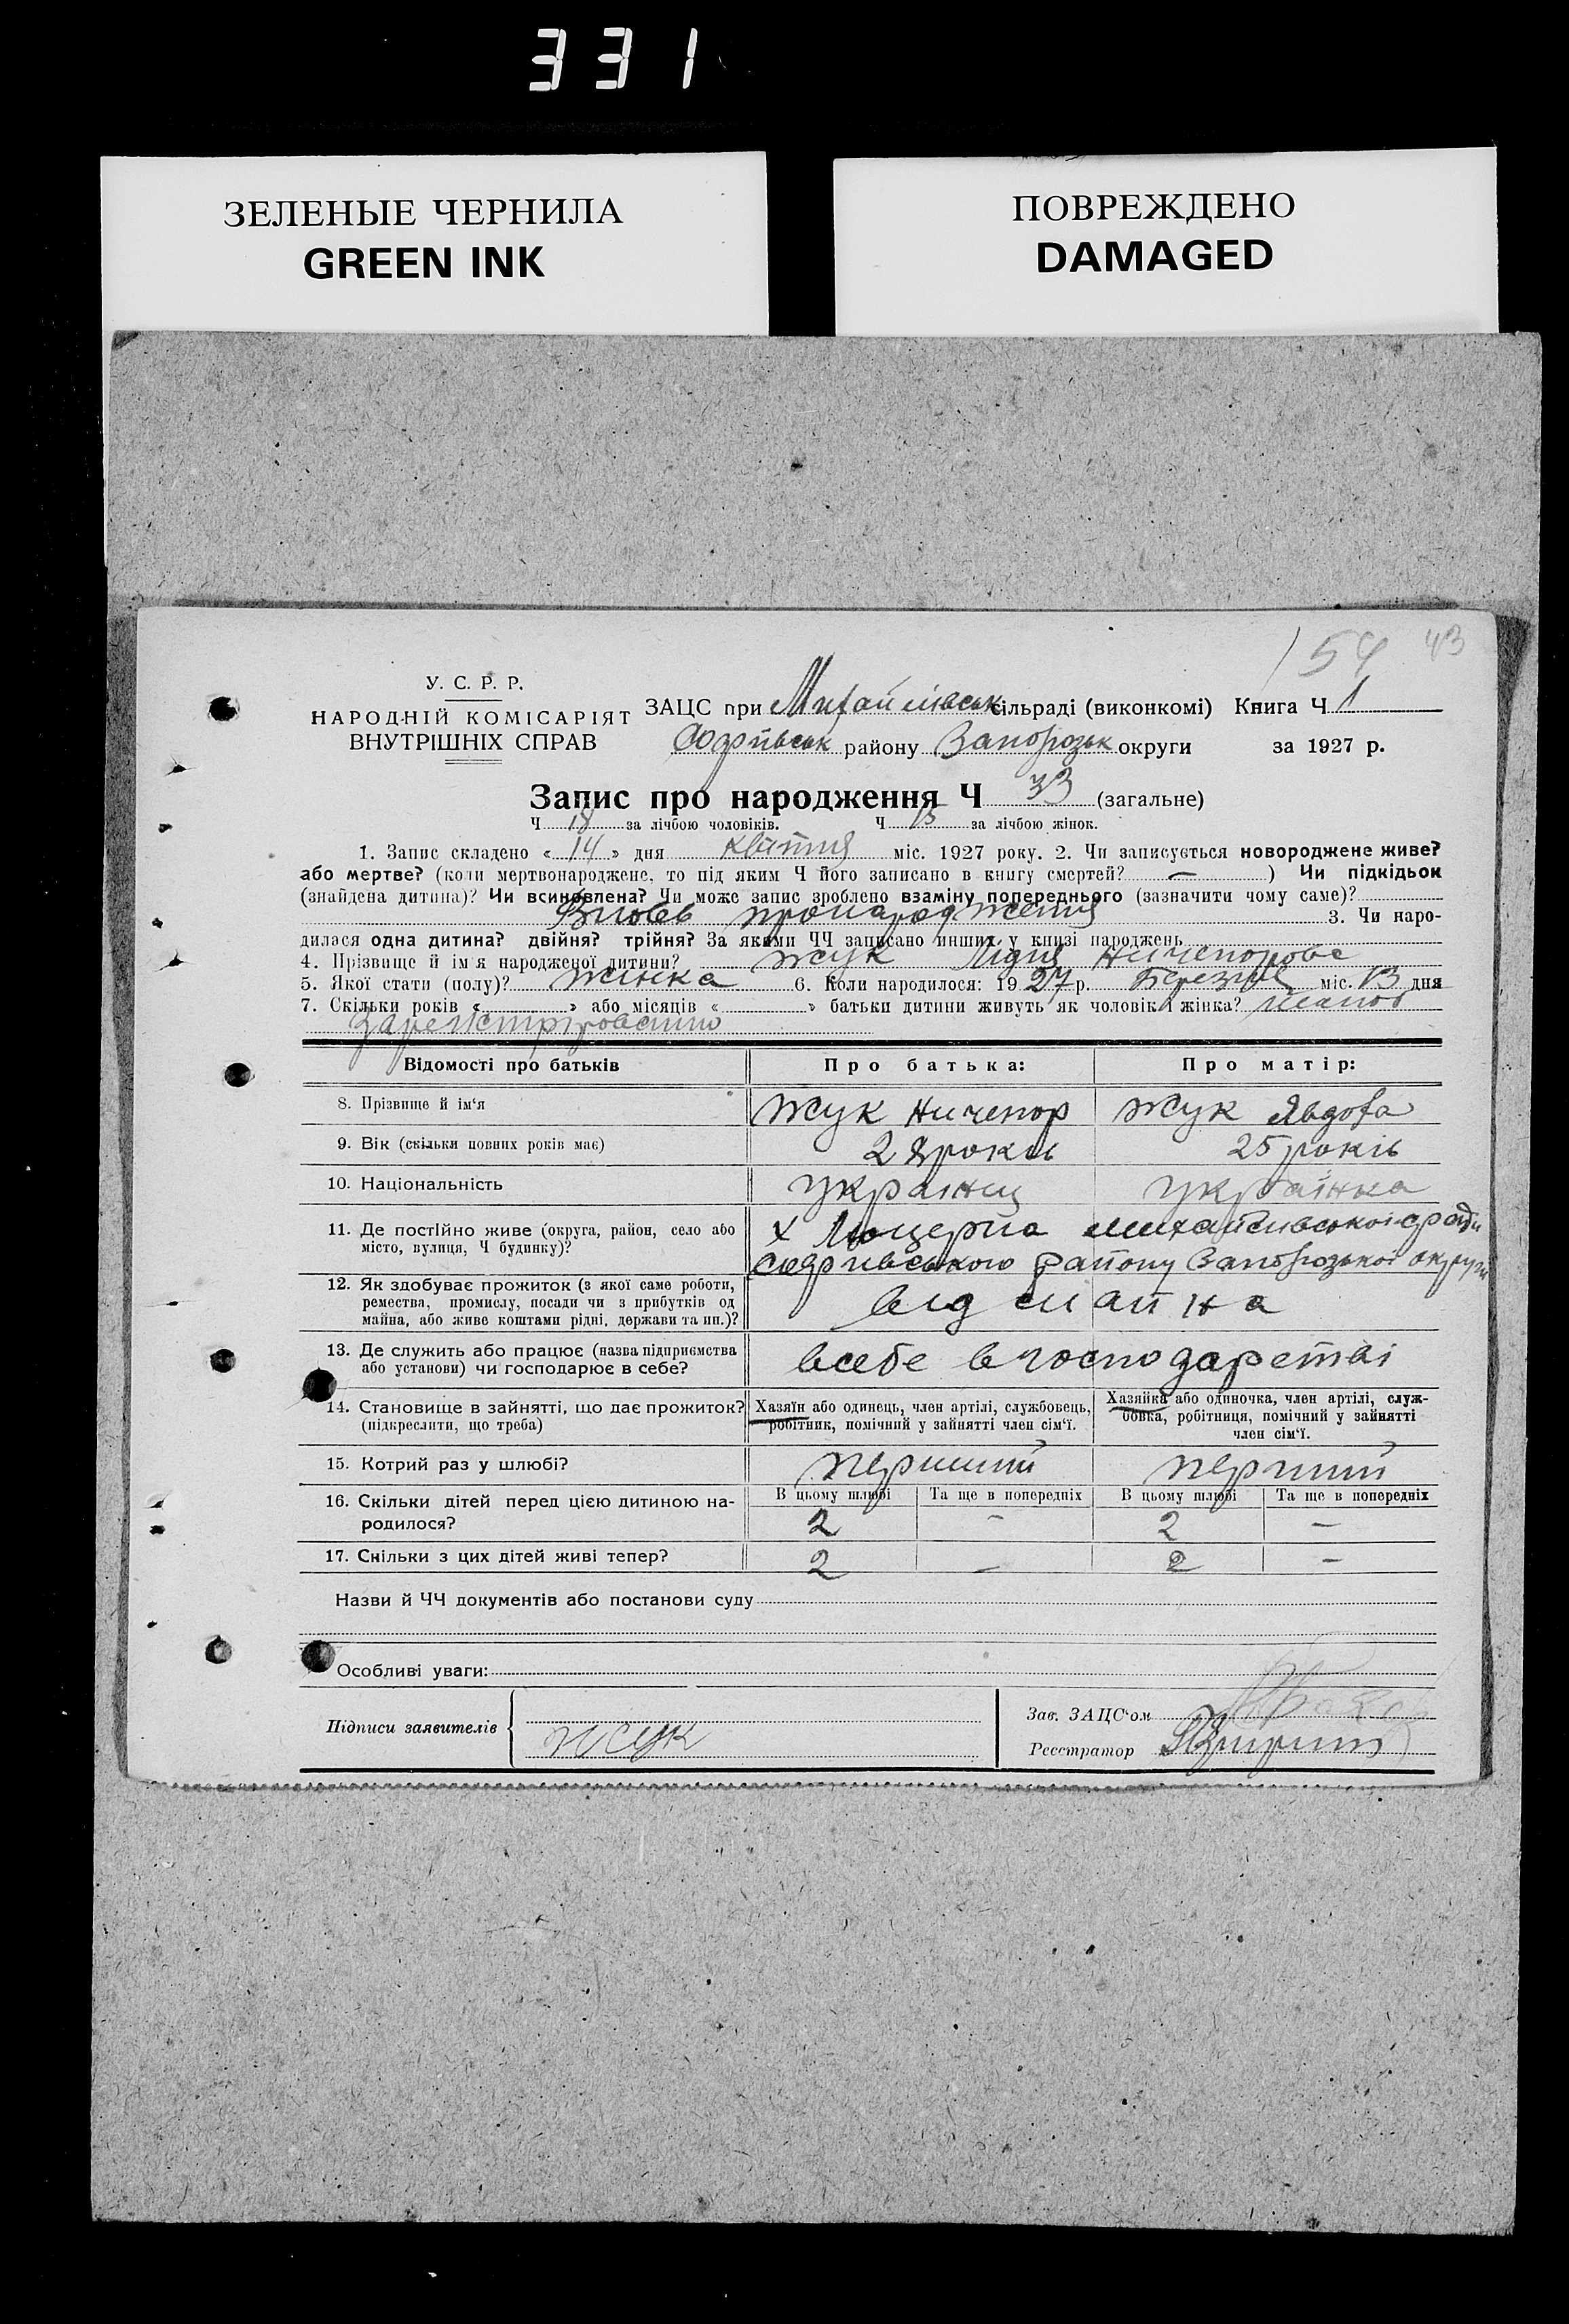 331
ЗЕЛЕНЫЕ ЧЕРНИЛА
GREEN INK
ПОВРЕЖДЕНО
DAMAGED
154 43
У. С. Р. Р.
НАРОДНІЙ КОМІСАРІЯТ
ВНУТРІШНІХ СПРАВ
ЗАЦС при Михайлівськ сільраді (виконкомі) Книга Ч 1
Софіївськ району Запорозьк округи за 1927 р.
Запис про народження Ч 33 (загальне)
Ч 18 за лічбою чоловіків. Ч 15 за лічбою жінок.
1. Запис складено «14» дня квітня міс. 1927 року. 2. Чи записується новороджене живе?
або мертве? (коли мертвонароджене, то під яким Ч його записано в книгу смертей? — ) Чи підкідьок
(знайдена дитина)? Чи всиновлена? Чи може запис зроблено взаміну попереднього (зазначити чому саме)?
3. Чи наро-
дилася одна дитина? двійня? трійня? За якими ЧЧ записано инших у книзі народжень
4. Прізвище й ім'я народженої дитини? Жук Лідия Ничепорова
5. Якої стати (полу)? жінка 6. Коли народилося: 1927 р. Березня міс. 13 дня
7. Скільки років « » або місяців « » батьки дитини живуть як чоловік і жінка?
Відомості про батьків Про батька: Про матір:
8. Прізвище й ім'я Жук Ничепор Жук Явдоха
9. Вік (скільки повних років має) 28 років 25 років
10. Національність українец українка
11. Де постійно живе (округа, район, село або
місто, вулиця, Ч будинку)?
х Люцерна Михайлівської с ради
Софиівського району Запорозької округи
12. Як здобуває прожиток (з якої саме роботи,
ремества, промислу, посади чи з прибутків од
майна, або живе коштами рідні, держави та ин.)?
від майна
13. Де служить або працює (назва підприємства
або установи) чи господарює в себе?
всебе в господарстві
14. Становище в зайнятті, що дає прожиток?
(підкреслити, що треба)
Хазяїн або одинець, член артілі, службовець,
робітник, помічний у зайнятті член сім'ї.
Хазяйка або одиночка, член артілі, служ-
бовка, робітниця, помічний у зайнятті
член сім'ї.
15. Котрий раз у шлюбі? перший перший
16. Скільки дітей перед цією дитиною на-
родилося?
В цьому шлюбі Та ще в попередніх В цьому шлюбі Та ще в попередніх
2 — 2 —
17. Скільки з цих дітей живі тепер? 2 — 2 —
Назви й ЧЧ документів або постанови суду
Особливі уваги:
Підписи заявителів Жук
Зав. ЗАЦС'ом
Реєстратор